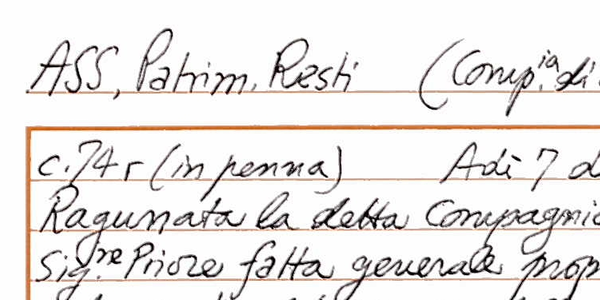 ASS, Patrim. Resti (Comp.ia di
c. 74 r (in penna) Adì 7 d
Ragunata la detta Compagnia
Sig.re Priore fatta generale prop